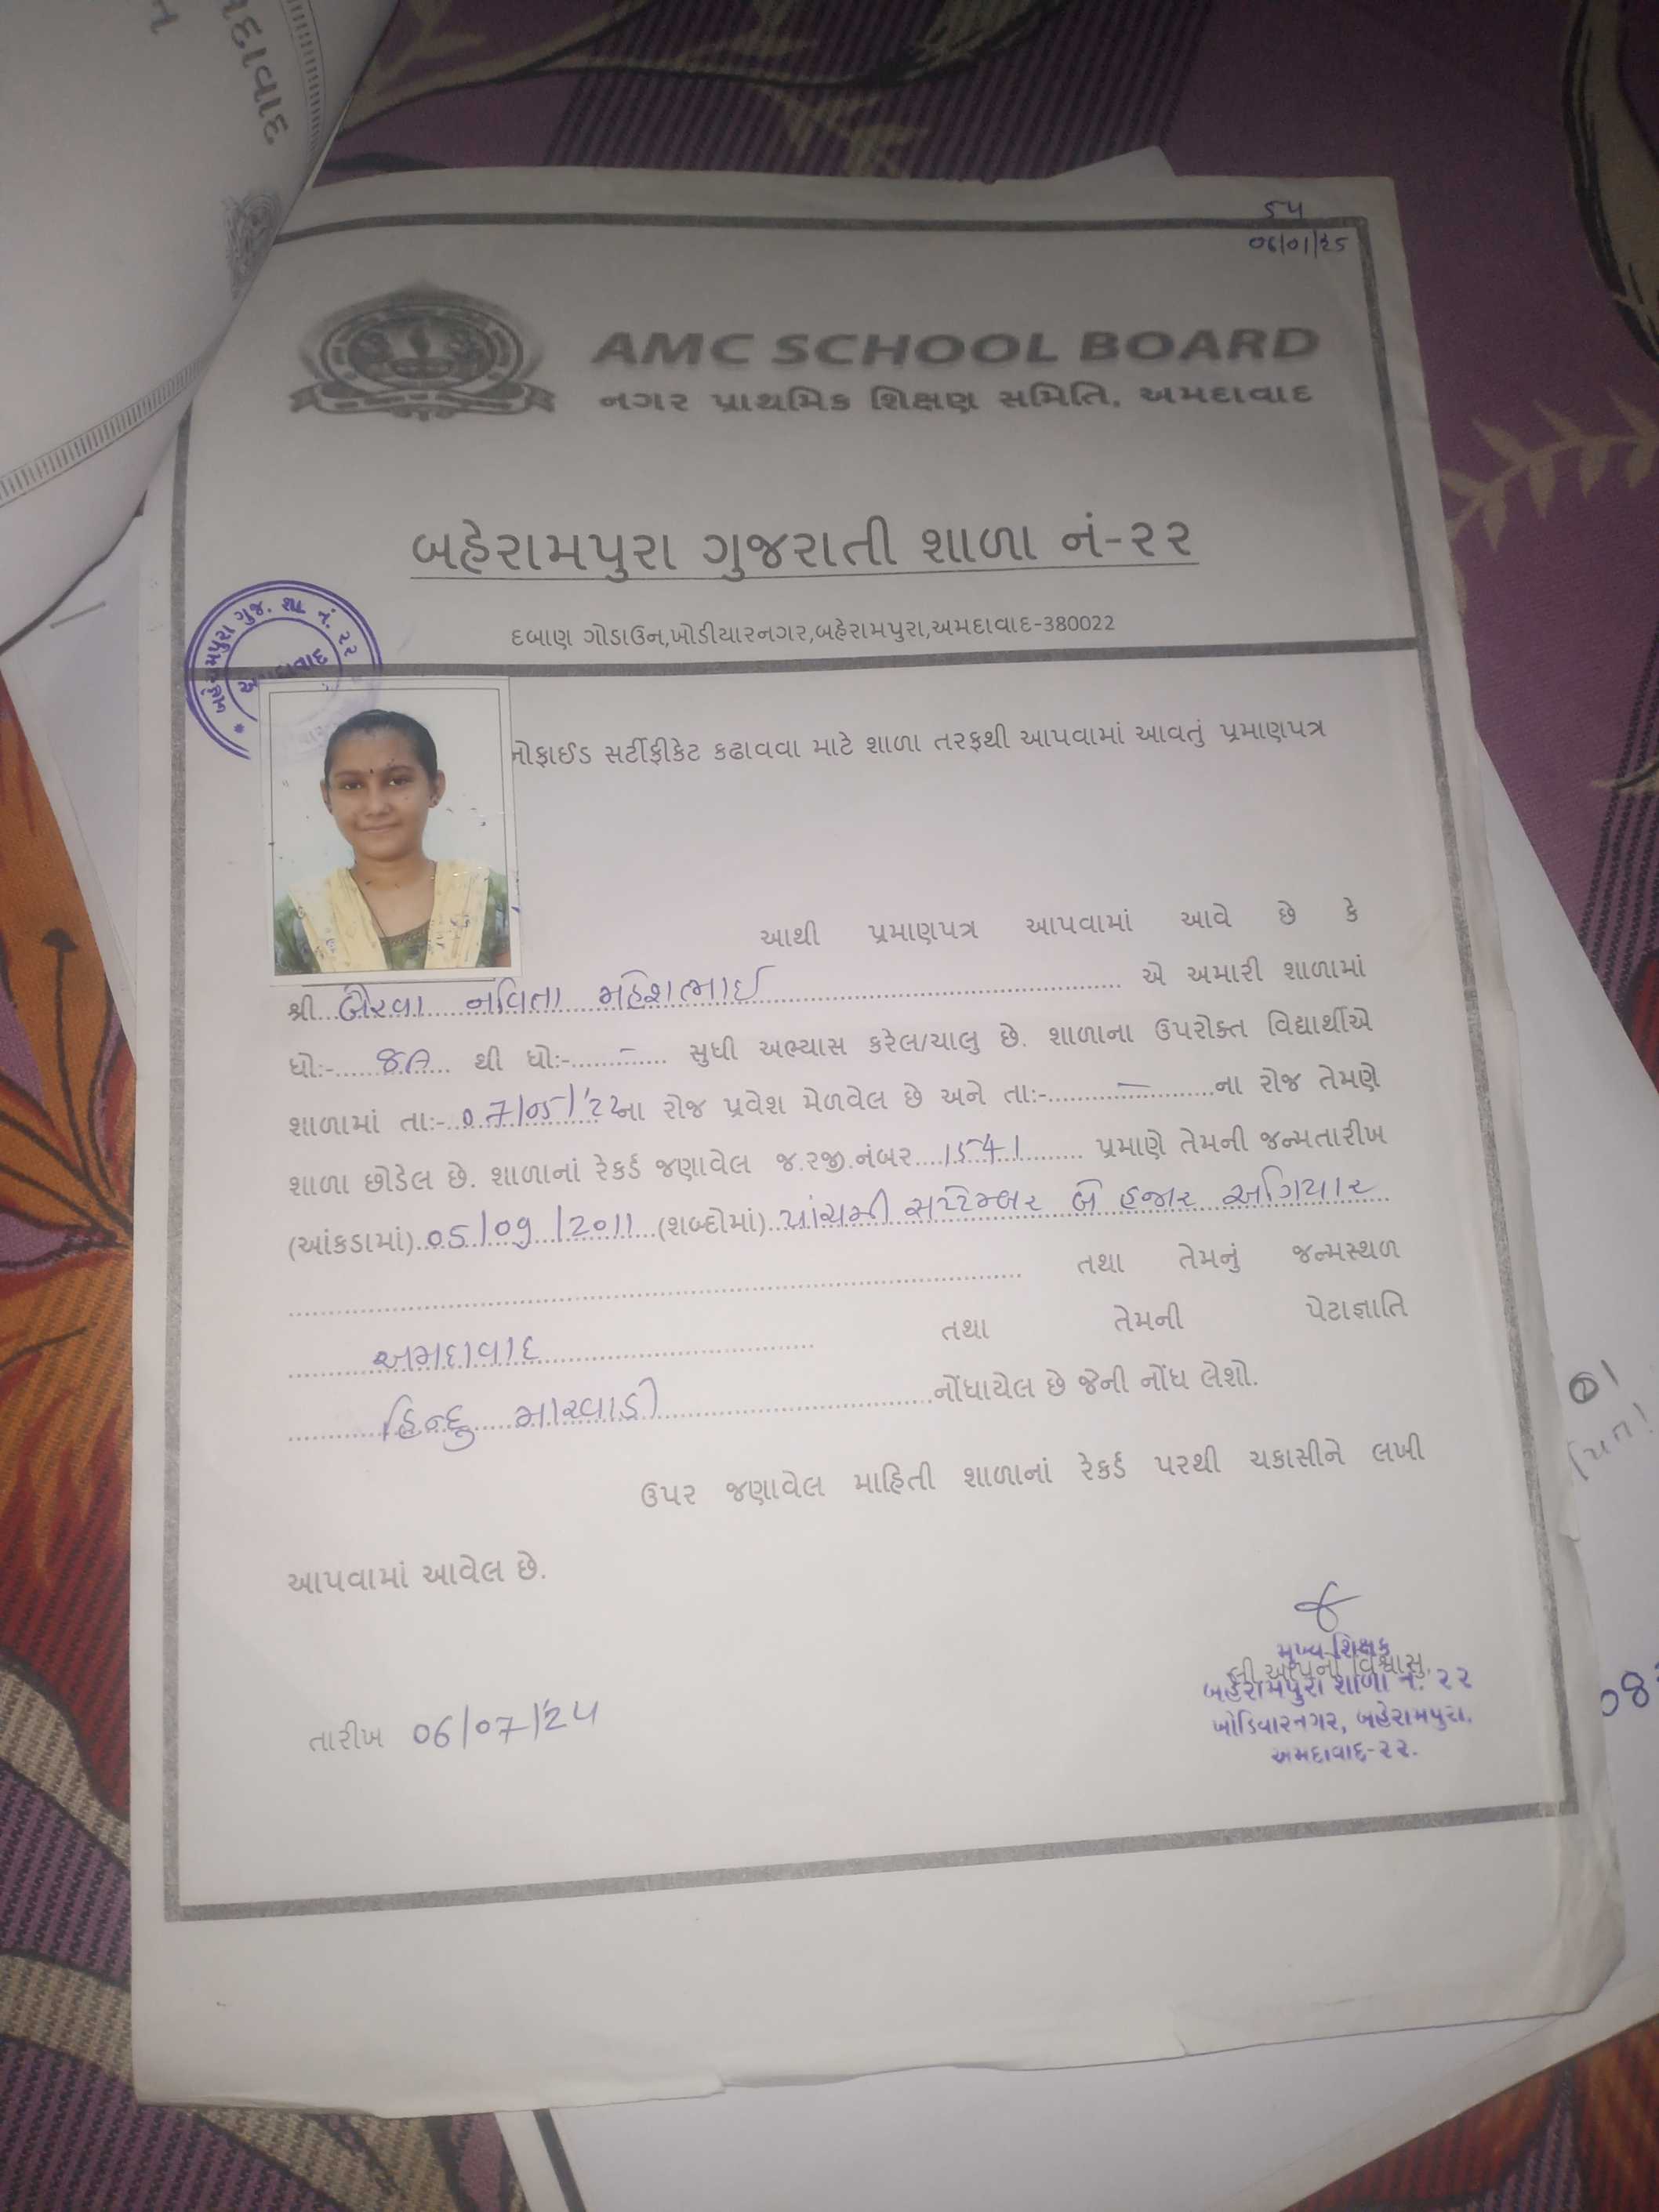 મદાવાદ
૬૫
06/01/25
AMC SCHOOL BOARD
નગર પ્રાથમિક શિક્ષણ સમિતિ, અમદાવાદ
બહેરામપુરા ગુજરાતી શાળા નં-૨૨
દબાણ ગોડાઉન,ખોડીયારનગર,બહેરામપુરા,અમદાવાદ-380022
બહેરામપુરા ગુજ. શા. નં. ૨૨
અમદાવાદ
નોફાઈડ સર્ટીફીકેટ કઢાવવા માટે શાળા તરફથી આપવામાં આવતું પ્રમાણપત્ર
આથી પ્રમાણપત્ર આપવામાં આવે છે કે
શ્રી બૈરવા નવિતા મહેશભાઈ એ અમારી શાળામાં
ધોઃ- 8A થી ધોઃ- - સુધી અભ્યાસ કરેલ/ચાલુ છે. શાળાના ઉપરોક્ત વિદ્યાર્થીએ
શાળામાં તાઃ- 07/05/'22 ના રોજ પ્રવેશ મેળવેલ છે અને તાઃ- - ના રોજ તેમણે
શાળા છોડેલ છે. શાળાનાં રેકર્ડ જણાવેલ જ.રજી.નંબર 1541 પ્રમાણે તેમની જન્મતારીખ
(આંકડામાં) 05/09/2011 (શબ્દોમાં) પાંચમી સપ્ટેમ્બર બે હજાર અગિયાર
તથા તેમનું જન્મસ્થળ
અમદાવાદ તથા તેમની પેટાજ્ઞાતિ
હિન્દુ મારવાડી નોંધાયેલ છે જેની નોંધ લેશો.
ઉપર જણાવેલ માહિતી શાળાનાં રેકર્ડ પરથી ચકાસીને લખી
આપવામાં આવેલ છે.
મુખ્ય શિક્ષક
લી આપનો વિશ્વાસુ,
બહેરામપુરા શાળા નં. ૨૨
ખોડિયારનગર, બહેરામપુરા.
અમદાવાદ-૨૨.
તારીખ 06/07/'24
08